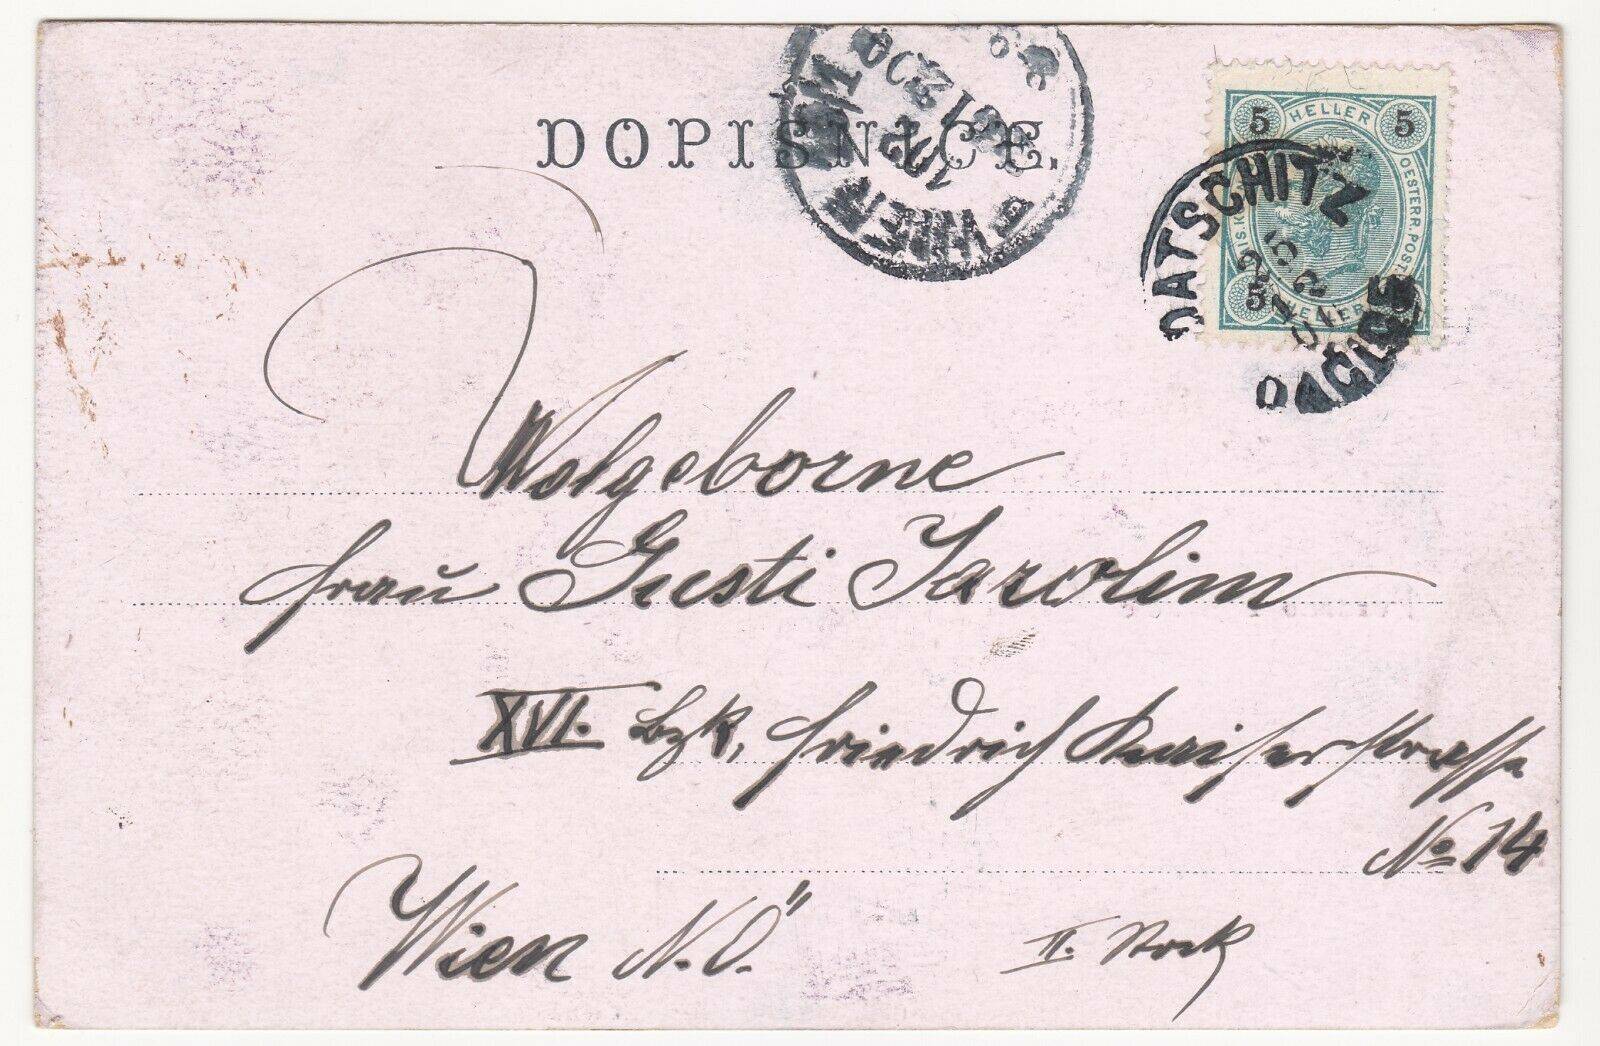 DOPISNICE.
WIEN
5 HELLER 5
OESTERR. POST
5 HELLER
DATSCHITZ
DAČICE
Wolgeborne
Frau Gusti Jarolim
XVI. Bzk, Friedrich Kaiserstrasse
No 14
Wien N.Ö.
II. Stock